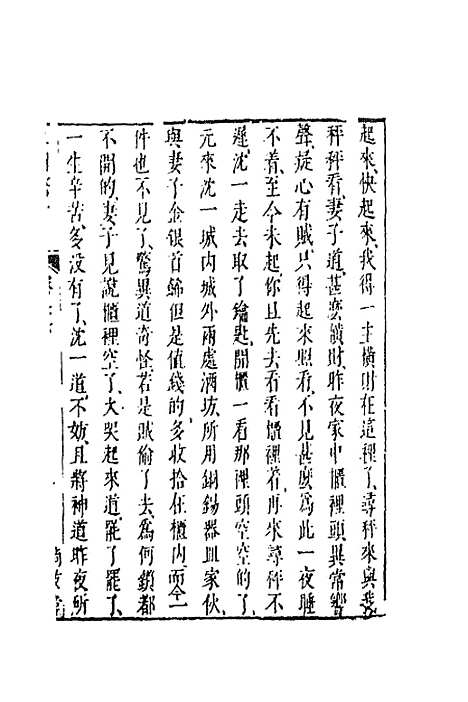 起來快起來我得一主橫財在這裡了尋秤來與我
秤秤看妻子道甚麼橫財昨夜家中櫃裡頭異常響
聲疑心有賊只得起來照看不見甚麼為此一夜睡
不着至今未起你且先去看看櫃裡着再來尋秤不
遲沈一走去取了鑰匙開櫃一看那裡頭空空的了
元來沈一城內城外兩處酒坊所用銅錫器皿家伙
與妻子金銀首餙但是值錢的多收拾在櫃內而今一
件也不見了驚異道奇怪若是賊偷了去為何鎖都
不開的妻子見說櫃裡空了大哭起來道罷了罷了
一生辛苦多沒有了沈一道不妨且將神道昨夜所
尚友堂